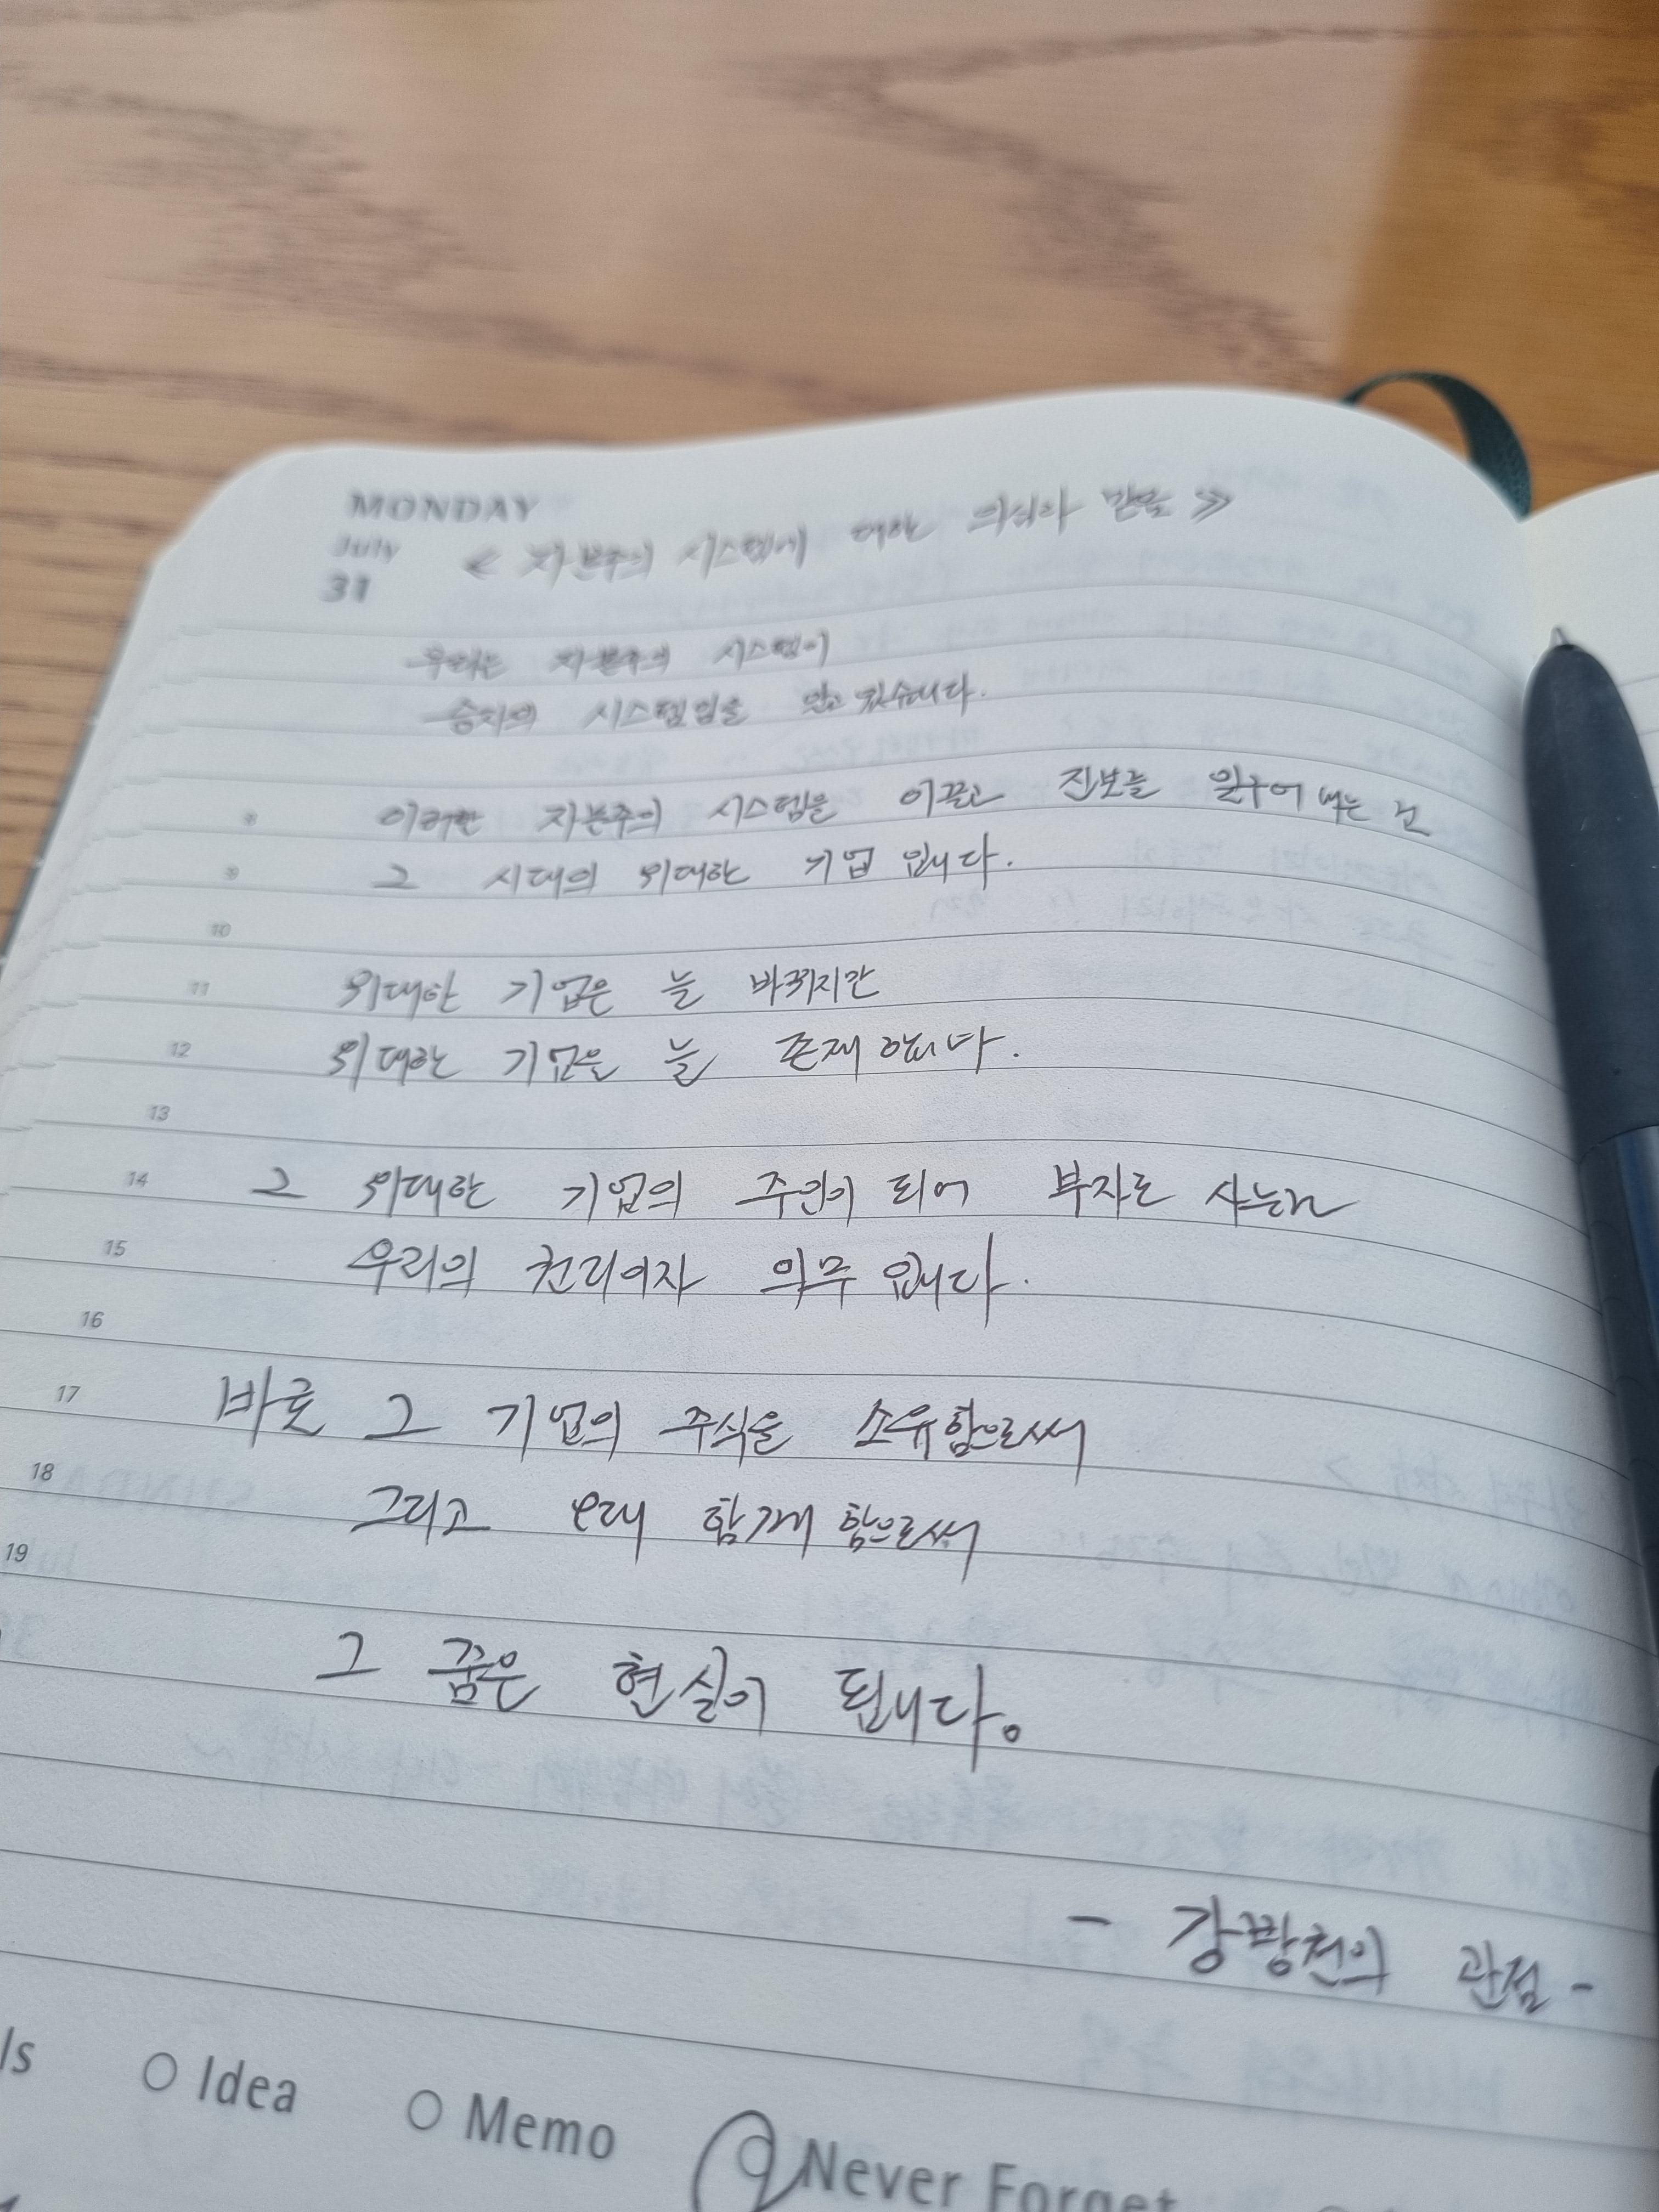 MONDAY
July
31
< 자본주의 시스템에 대한 의식과 믿음 >>
우리는 자본주의 시스템이
승자의 시스템임을 알고 있습니다.
8
이러한 자본주의 시스템을 이끌고 진보를 일구어 내는 건
9
그 시대의 위대한 기업 입니다.
10
11
위대한 기업은 늘 바뀌지만
12
위대한 기업은 늘 존재 합니다.
13
14
그 위대한 기업의 주인이 되어 부자로 사는건
15
우리의 권리이자 의무 입니다.
16
17
바로 그 기업의 주식을 소유함으로써
18
그리고 오래 함께 함으로써
19
그 꿈은 현실이 됩니다。
- 강방천의 관점 -
ls
Idea
Memo
Never Forget